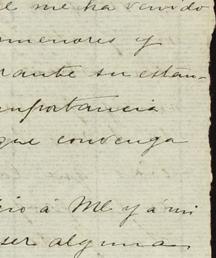 me ha servido
menores y
rante su estan-
importancia
que convenga
á Me y á mi
ser alguna.